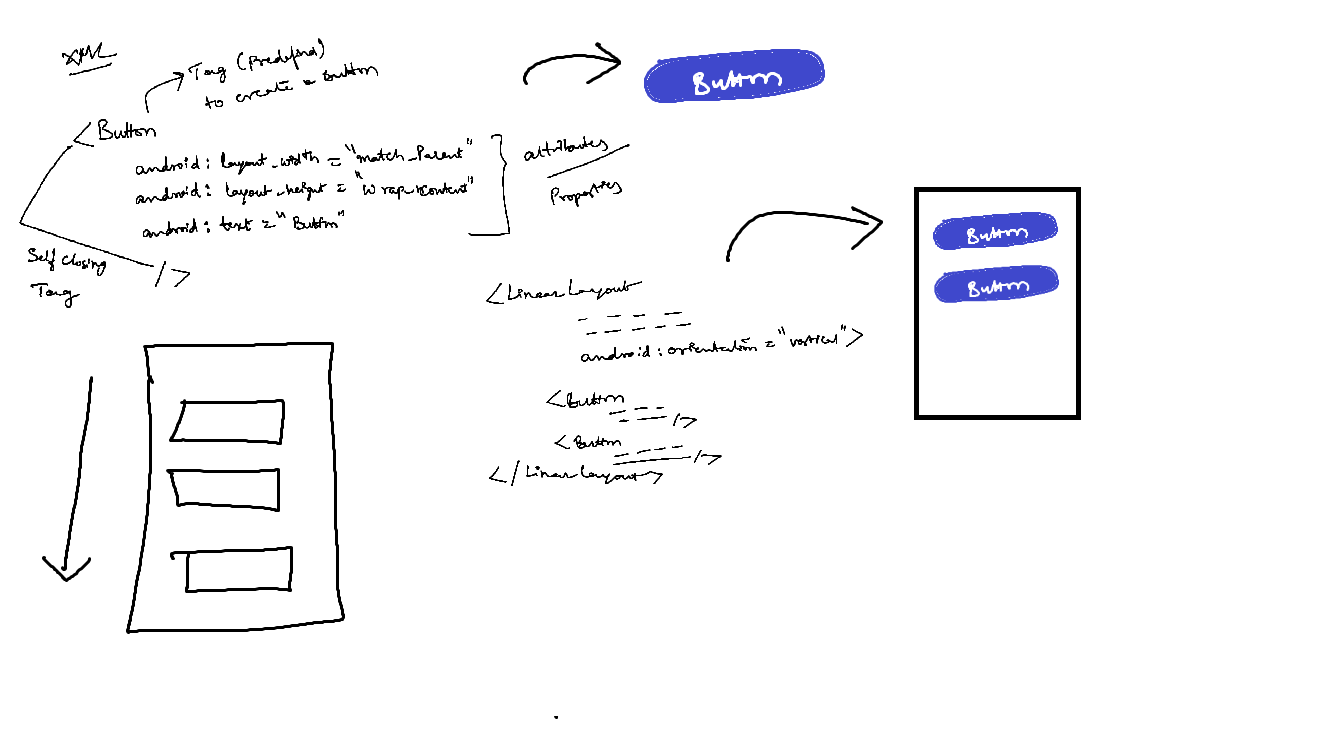 XML
Tag (Predefined)
to create a button
<Button
android: layout_width = "match_Parent"
android: layout_height = "Wrap_content"
android: text = "Button"
/>
Self closing
Tag
attributes
Properties
Button
<LinearLayout
android: orientation = "vertical">
<Button
/>
<Button
/>
</LinearLayout>
Button
Button